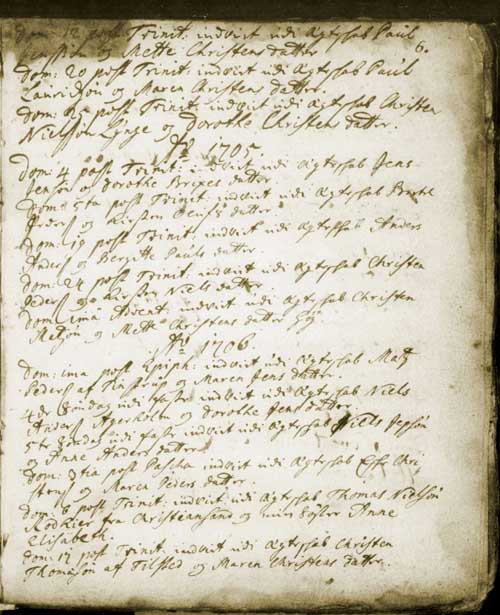 Dom: 12 post Trinit: indviet udi Ægteskab Paul
6.
og Mette Christens datter
Dom: 20 post Trinit: indviet udi Ægteskab Paul
Lauridsøn og Maren Christens datter.
Dom: 25 post Trinit: indviet udi Ægteskab Christen
Nielssøn og Dorothe Christens datter.
Aº 1705
Dom: 4 post Trinit: indviet udi Ægteskab Jens
Jensøn og Dorothe Brixes datter.
Dom: 5ta post Trinit: indviet udi Ægteskab
Anders og Kirsten datter.
Dom: 19 post Trinit: indviet udi Ægteskab Anders
Anders og Bergitte Pauls datter.
Dom: 24 post Trinit: indviet udi Ægteskab Christen
Peders og Kirsten Niels datter.
Dom: ima Advent: indviet udi Ægteskab Christen
og Mette Christens datter
Aº 1706.
Dom: ima post Epiph: indviet udi Ægteskab Matz
Peders af og Maren Jens datter.
4de Søndag udi faste indviet udi Ægteskab Niels
Anders Agerholm og Dorothe Jens datter
5te Søndag udi faste indviet udi Ægteskab Niels Jepsøn
og Anne Anders datter
Dom: 3tia post Pascha indviet udi Ægteskab Esse Chri-
stens og Maren Peders datter.
Dom: 6 post Trinit: indviet udi Ægteskab Thomas Nielsøn
fra Christiansand og min Søster Anne
Elisabeth.
Dom: 12 post Trinit: indviet udi Ægteskab Christen
Thomæsøn af Tilsted og Maren Christens datter.